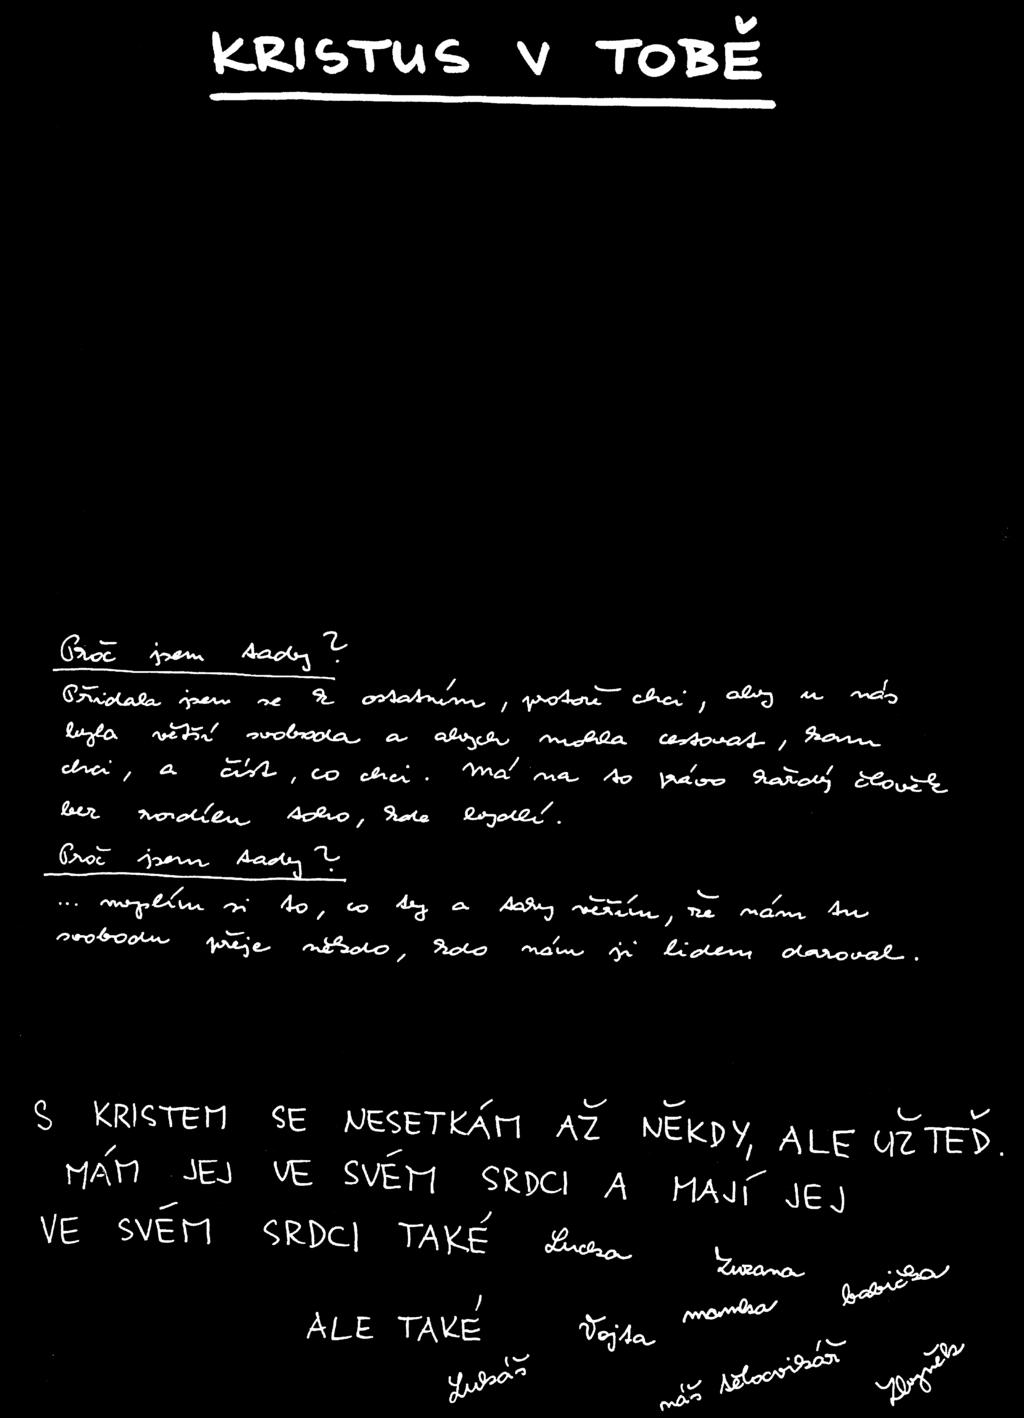 KRISTUS V TOBĚ
Proč jsem tady?
Přidala jsem se k ostatním, protože chci, aby u nás
byla větší svoboda a abych mohla cestovat, kam
chci, a číst, co chci. Má na to právo každý člověk
bez rozdílu toho, kde bydlí.
Proč jsem tady?
... myslím si to, co ty a taky věřím, že nám tu
svobodu přeje někdo, kdo nám ji lidem daroval.
S KRISTEM SE NESETKÁM AŽ NĚKDY, ALE UŽ TEĎ.
MÁM JEJ VE SVÉM SRDCI A MAJÍ JEJ
VE SVÉM SRDCI TAKÉ Lucka Zuzana babička
ALE TAKÉ Vojta mamka
Lukáš náš tělocvikář Zbyněk